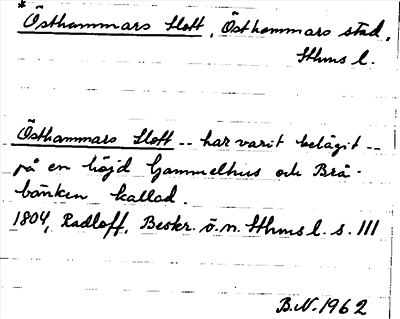 * Östhammars slott, Östhammars stad,
Sthms l.
Östhammars Slott -- har varit belägit --
på en höjd Gammelhus och Brä-
bänken kallad.
1804, Radloff, Beskr. ö. n. Sthms l. s. 111
B.N. 1962